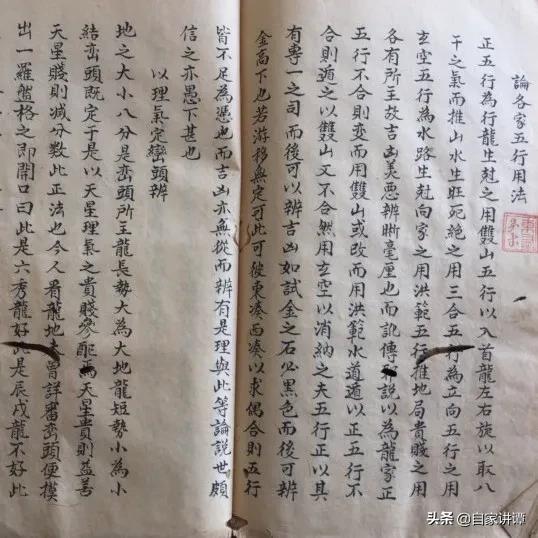 論各家五行用法
正五行為行龍生尅之用雙山五行以入首龍左右旋以取八
干之氣而推山水生旺死絶之用三合五行為立向五行之用
玄空五行為水路生尅向家之用洪範五行推地局貴賤之用
各有所主故吉凶美悪辨晰毫厘也而訛傳邪說以為龍家正
五行不合則变而用雙山或改而用洪範水道遁以正五行不
合則遁之以雙山又不合然用玄空以消納之夫五行正以其
有專一之司而後可以辨吉凶如試金之石必黑色而後可辨
金高下也若游移無定可此可彼東凑西凑以求偶合則五行
皆不足為憑也而吉凶亦無從而辨有是理與此等論說世頗
信之亦愚下甚也
以理氣定巒頭辨
地之大小八分是巒頭所主龍長勢大為大地龍短勢小為小
結巒頭既定于是以天星理氣之貴賤參酌焉天星貴則益善
天星賤則減分数此正法也今人看龍地未曽詳審巒頭便摸
出一羅盤格之即開口曰此是六秀龍好此是辰戌龍不好此
头条 @自家讲谭